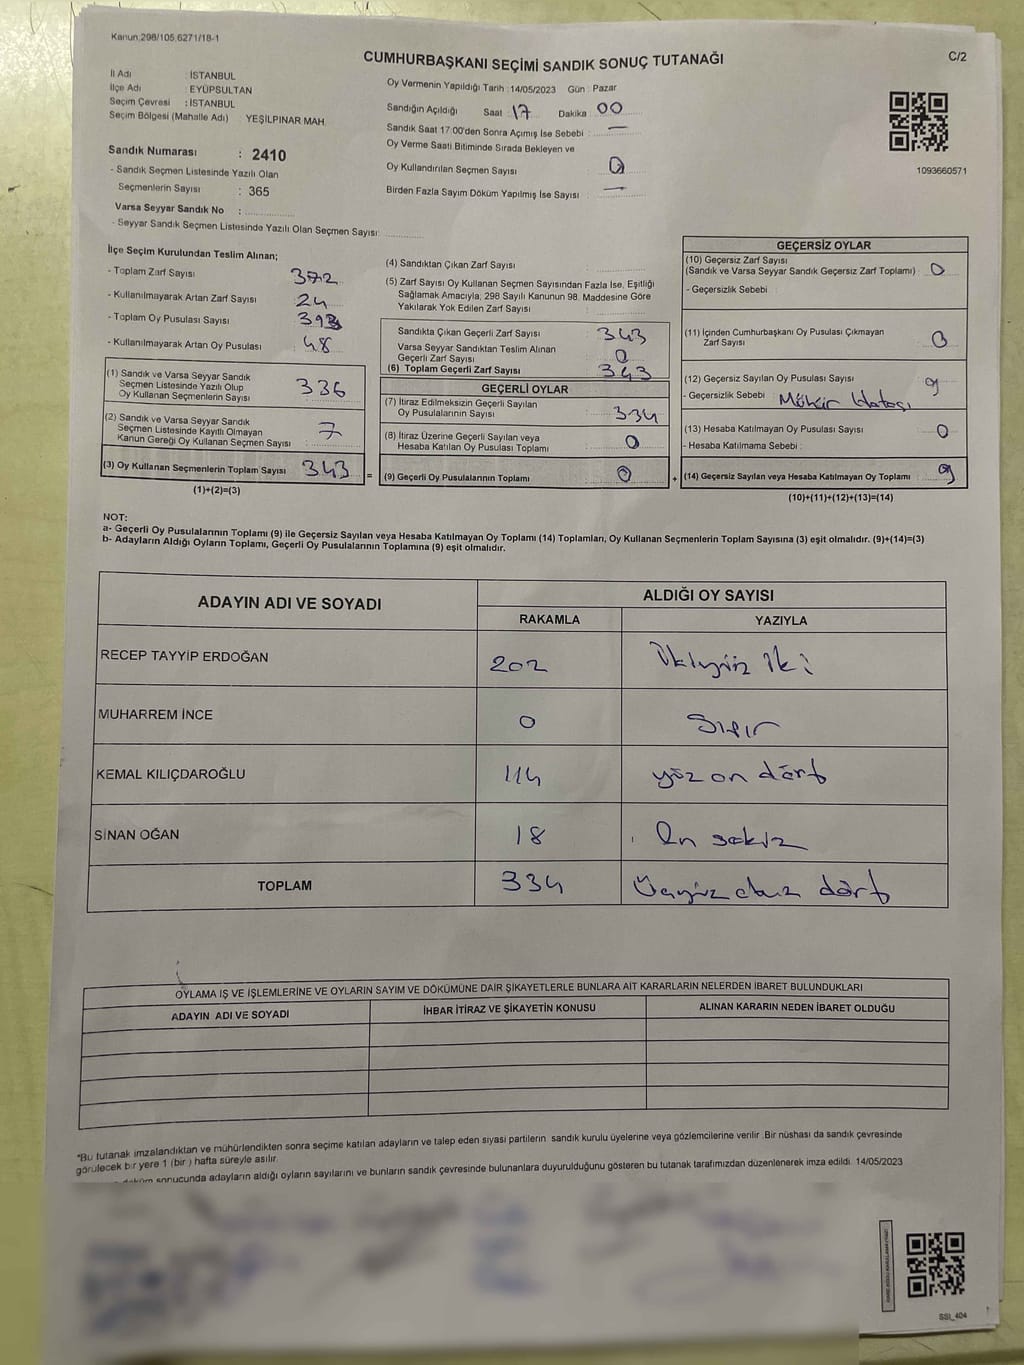 Kanun,298/105,6271/18-1
C/2
CUMHURBAŞKANI SEÇİMİ SANDIK SONUÇ TUTANAĞI
İl Adı : İSTANBUL
İlçe Adı : EYÜPSULTAN
Seçim Çevresi : İSTANBUL
Seçim Bölgesi (Mahalle Adı) : YEŞİLPINAR MAH.
Sandık Numarası : 2410
- Sandık Seçmen Listesinde Yazılı Olan
Seçmenlerin Sayısı : 365
Varsa Seyyar Sandık No :
- Seyyar Sandık Seçmen Listesinde Yazılı Olan Seçmen Sayısı:
Oy Vermenin Yapıldığı Tarih :14/05/2023 Gün : Pazar
Sandığın Açıldığı Saat 17 Dakika 00
Sandık Saat 17:00'den Sonra Açımış İse Sebebi : —
Oy Verme Saati Bitiminde Sırada Bekleyen ve
Oy Kullandırılan Seçmen Sayısı : 0
Birden Fazla Sayım Döküm Yapılmış İse Sayısı : —
1093660571
İlçe Seçim Kurulundan Teslim Alınan;
- Toplam Zarf Sayısı 372
- Kullanılmayarak Artan Zarf Sayısı 24
- Toplam Oy Pusulası Sayısı
- Kullanılmayarak Artan Oy Pusulası 48
(1) Sandık ve Varsa Seyyar Sandık
Seçmen Listesinde Yazılı Olup
Oy Kullanan Seçmenlerin Sayısı 336
(2) Sandık ve Varsa Seyyar Sandık
Seçmen Listesinde Kayıtlı Olmayan
Kanun Gereği Oy Kullanan Seçmen Sayısı 7
(3) Oy Kullanan Seçmenlerin Toplam Sayısı 343 =
(1)+(2)=(3)
(4) Sandıktan Çıkan Zarf Sayısı :
(5) Zarf Sayısı Oy Kullanan Seçmen Sayısından Fazla İse, Eşitliği
Sağlamak Amacıyla, 298 Sayılı Kanunun 98. Maddesine Göre
Yakılarak Yok Edilen Zarf Sayısı :
Sandıkta Çıkan Geçerli Zarf Sayısı : 343
Varsa Seyyar Sandıktan Teslim Alınan
Geçerli Zarf Sayısı : 0
(6) Toplam Geçerli Zarf Sayısı : 343
GEÇERLİ OYLAR
(7) İtiraz Edilmeksizin Geçerli Sayılan
Oy Pusulalarının Sayısı : 334
(8) İtiraz Üzerine Geçerli Sayılan veya
Hesaba Katılan Oy Pusulası Toplamı : 0
(9) Geçerli Oy Pusulalarının Toplamı : 0 +
GEÇERSİZ OYLAR
(10) Geçersiz Zarf Sayısı
(Sandık ve Varsa Seyyar Sandık Geçersiz Zarf Toplamı) : 0
- Geçersizlik Sebebi :
(11) İçinden Cumhurbaşkanı Oy Pusulası Çıkmayan
Zarf Sayısı : 0
(12) Geçersiz Sayılan Oy Pusulası Sayısı : 9
- Geçersizlik Sebebi : Mühür Hatası
(13) Hesaba Katılmayan Oy Pusulası Sayısı : 0
- Hesaba Katılmama Sebebi :
(14) Geçersiz Sayılan veya Hesaba Katılmayan Oy Toplamı : 9
(10)+(11)+(12)+(13)=(14)
NOT:
a- Geçerli Oy Pusulalarının Toplamı (9) ile Geçersiz Sayılan veya Hesaba Katılmayan Oy Toplamı (14) Toplamları, Oy Kullanan Seçmenlerin Toplam Sayısına (3) eşit olmalıdır. (9)+(14)=(3)
b- Adayların Aldığı Oyların Toplamı, Geçerli Oy Pusulalarının Toplamına (9) eşit olmalıdır.
ADAYIN ADI VE SOYADI ALDIĞI OY SAYISI
RAKAMLA YAZIYLA
RECEP TAYYİP ERDOĞAN 202 İkiyüz iki
MUHARREM İNCE 0 Sıfır
KEMAL KILIÇDAROĞLU 114 yüz on dört
SİNAN OĞAN 18 On sekiz
TOPLAM 334 Üçyüz otuz dört
OYLAMA İŞ VE İŞLEMLERİNE VE OYLARIN SAYIM VE DÖKÜMÜNE DAİR ŞİKAYETLERLE BUNLARA AİT KARARLARIN NELERDEN İBARET BULUNDUKLARI
ADAYIN ADI VE SOYADI İHBAR İTİRAZ VE ŞİKAYETİN KONUSU ALINAN KARARIN NEDEN İBARET OLDUĞU
*Bu tutanak imzalandıktan ve mühürlendikten sonra seçime katılan adayların ve talep eden siyasi partilerin sandık kurulu üyelerine veya gözlemcilerine verilir. Bir nüshası da sandık çevresinde
görülecek bir yere 1 (bir) hafta süreyle asılır.
döküm sonucunda adayların aldığı oyların sayılarını ve bunların sandık çevresinde bulunanlara duyurulduğunu gösteren bu tutanak tarafımızdan düzenlenerek imza edildi. 14/05/2023
SSI_404